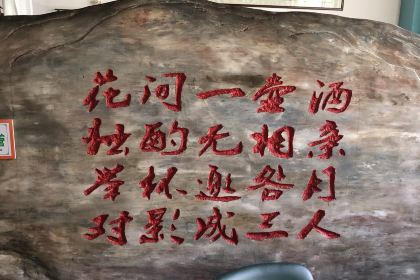 花间一壶酒
独酌无相亲
举杯邀明月
对影成三人